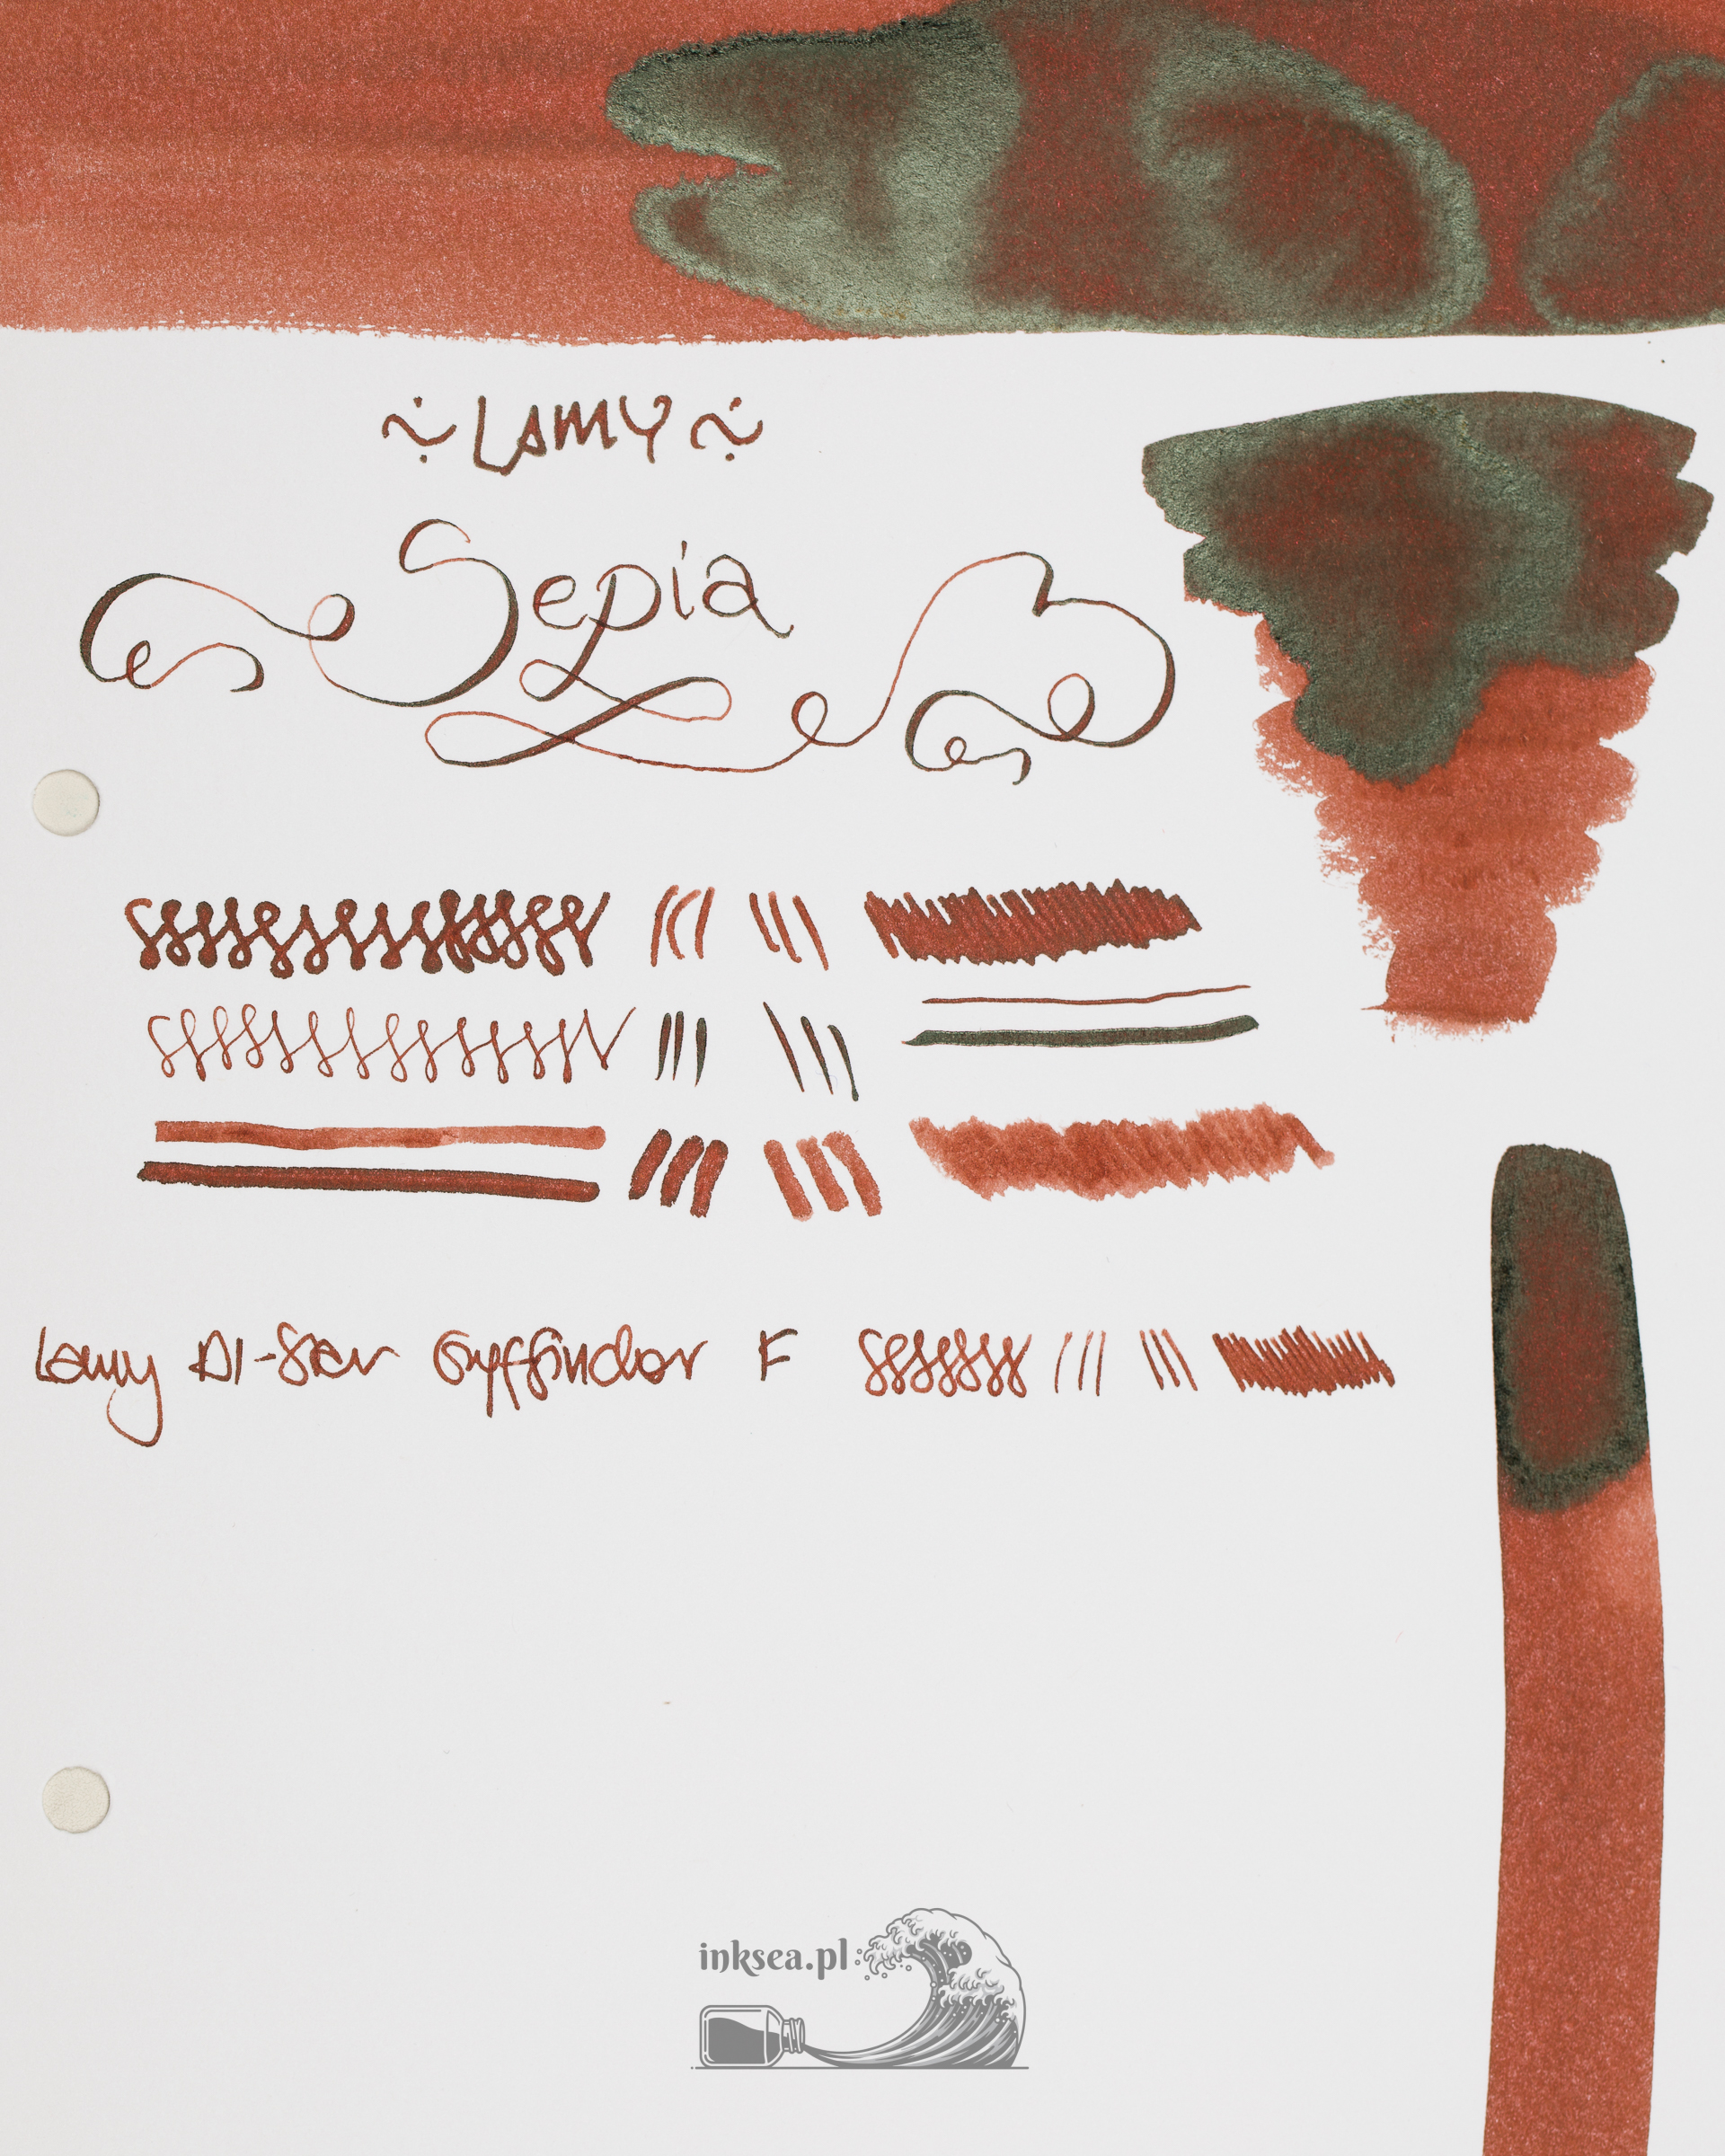 ~ LAMY ~
Sepia
Lamy Al-Star Gryffindor F
inksea.pl